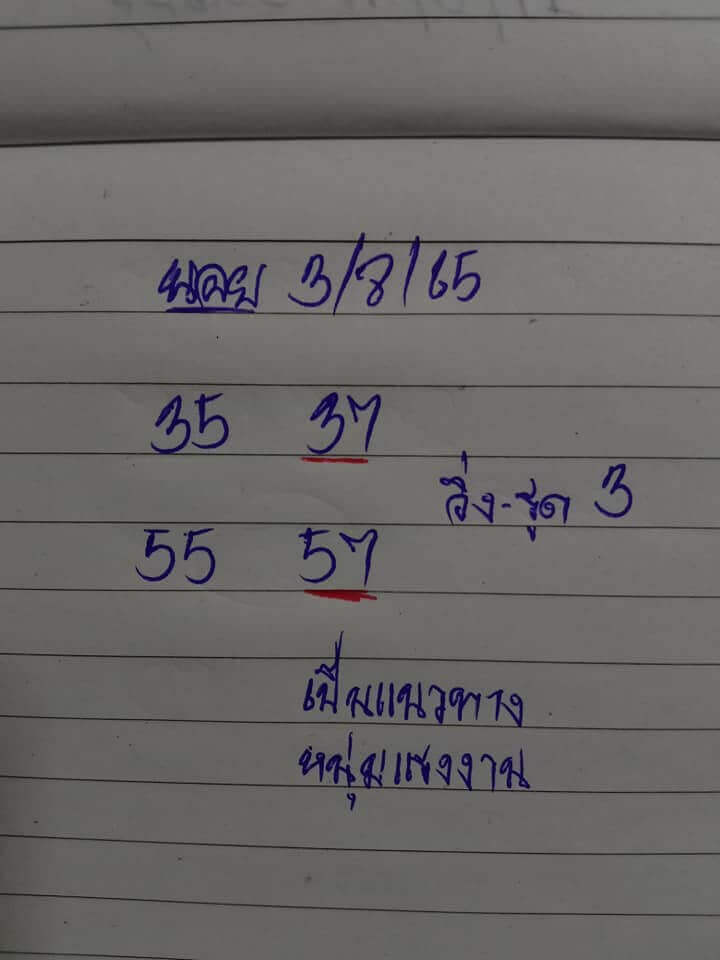 นอย 3/8/65
35 37
วิ่ง-รูด 3
55 57
เป็นแนวทาง
หนุ่มแซงงาน